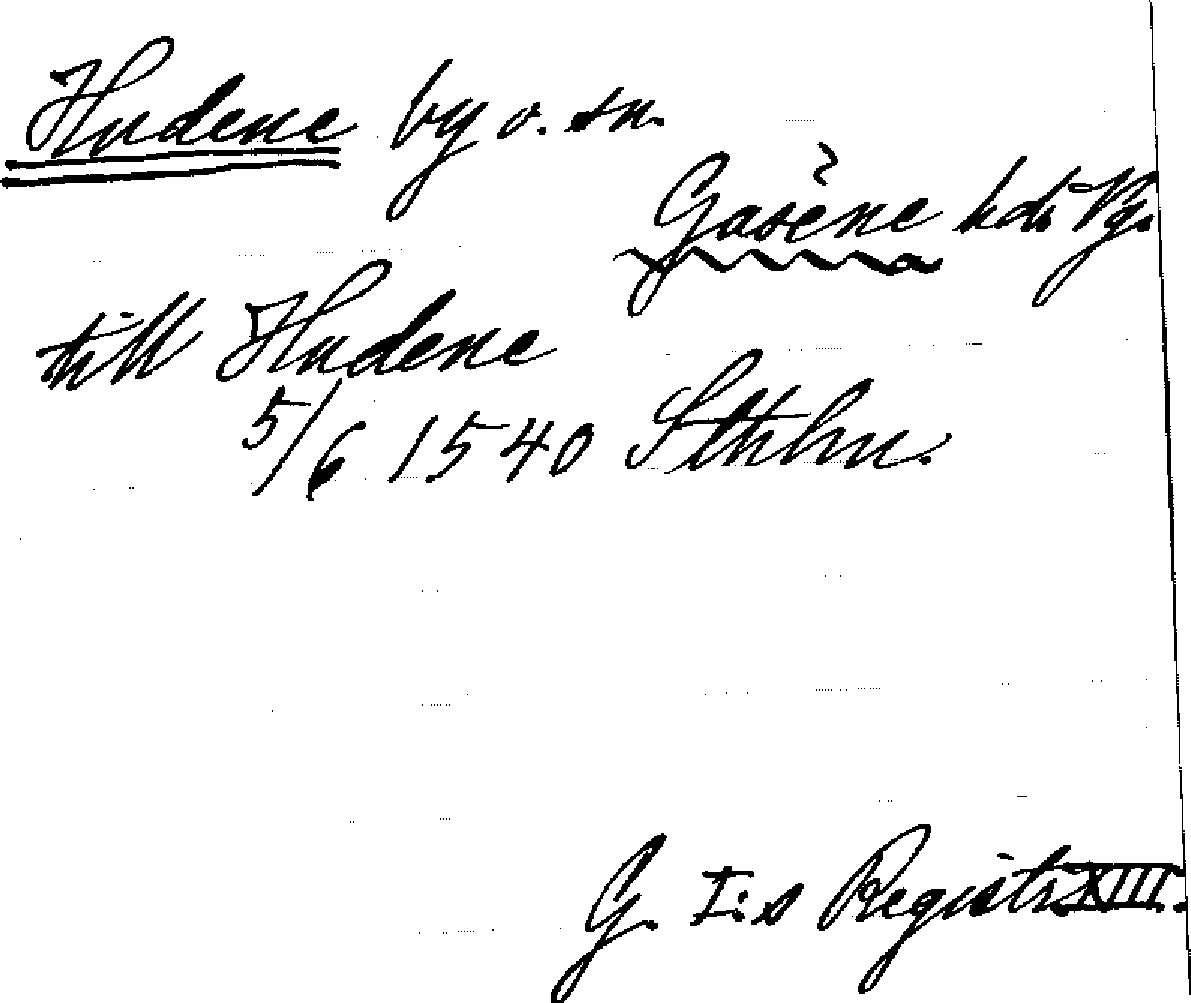 Hudene by o. sn.
Gäsene hd. Vg.
till Hudene
5/6 1540 Sthlm.
G. I:s Registr. XIII.